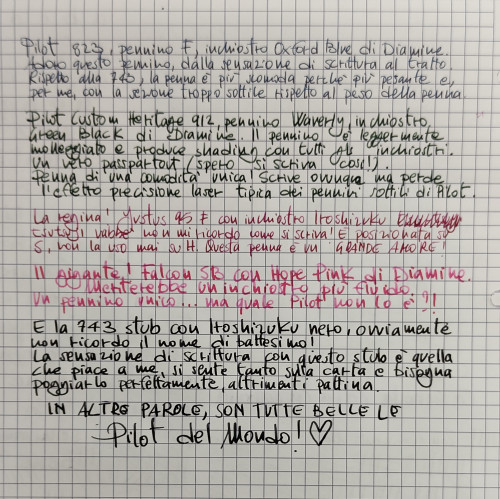 Pilot 823, pennino F, inchiostro Oxford Blue di Diamine.
Adoro questo pennino, dalla sensazione di scrittura al tratto.
Rispetto alla 743, la penna è più scomoda perché più pesante e,
per me, con la sezione troppo sottile rispetto al peso della penna.
Pilot Custom Heritage 912, pennino Waverly, inchiostro
Green Black di Diamine. Il pennino è leggermente
molleggiato e produce shading con tutti gli inchiostri.
Un vero passpartout (spero si scriva così!).
Penna di una comodità unica! Scrive ovunque ma perde
l'effetto precisione laser tipica dei pennini sottili di Pilot.
La regina! Justus 95 F con inchiostro Iroshizuku
tsutsuji vabbè non mi ricordo come si scriva! È posizionata su
S, non la uso mai su H. Questa penna è un GRANDE AMORE!
Il gigante! Falcon SB con Hope Pink di Diamine.
Meriterebbe un inchiostro più fluido.
Un pennino unico... ma quale Pilot non lo è?!
E la 743 stub con Iroshizuku nero, ovviamente
non ricordo il nome di battesimo!
La sensazione di scrittura con questo stub è quella
che piace a me, si sente tanto sulla carta e bisogna
poggiarlo perfettamente, altrimenti pattina.
IN ALTRE PAROLE, SON TUTTE BELLE LE
Pilot del Mondo!